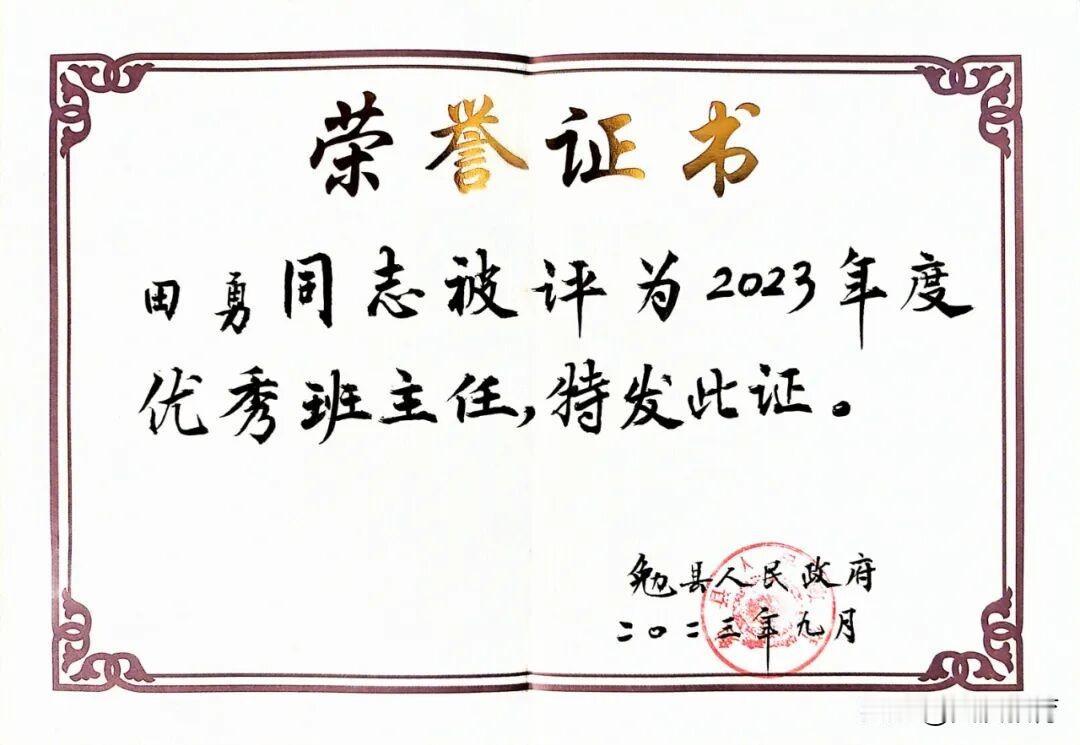 荣誉证书
田勇同志被评为2023年度
优秀班主任,特发此证。
勉县人民政府
二〇二三年九月